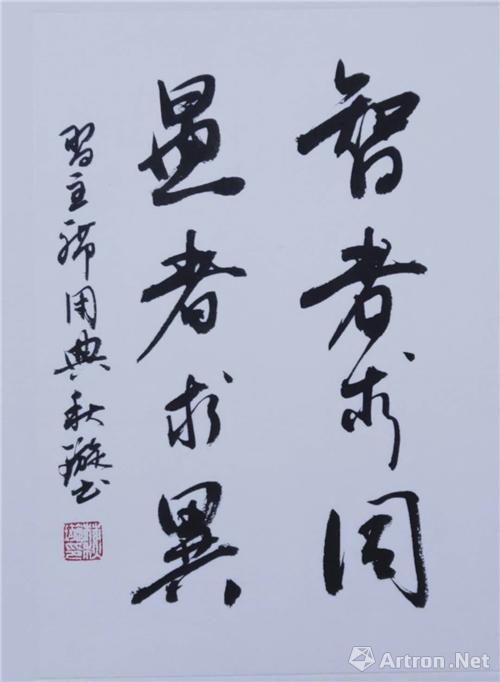 智者求同
愚者求異
習主席用典 秋璇书
Artron.Net